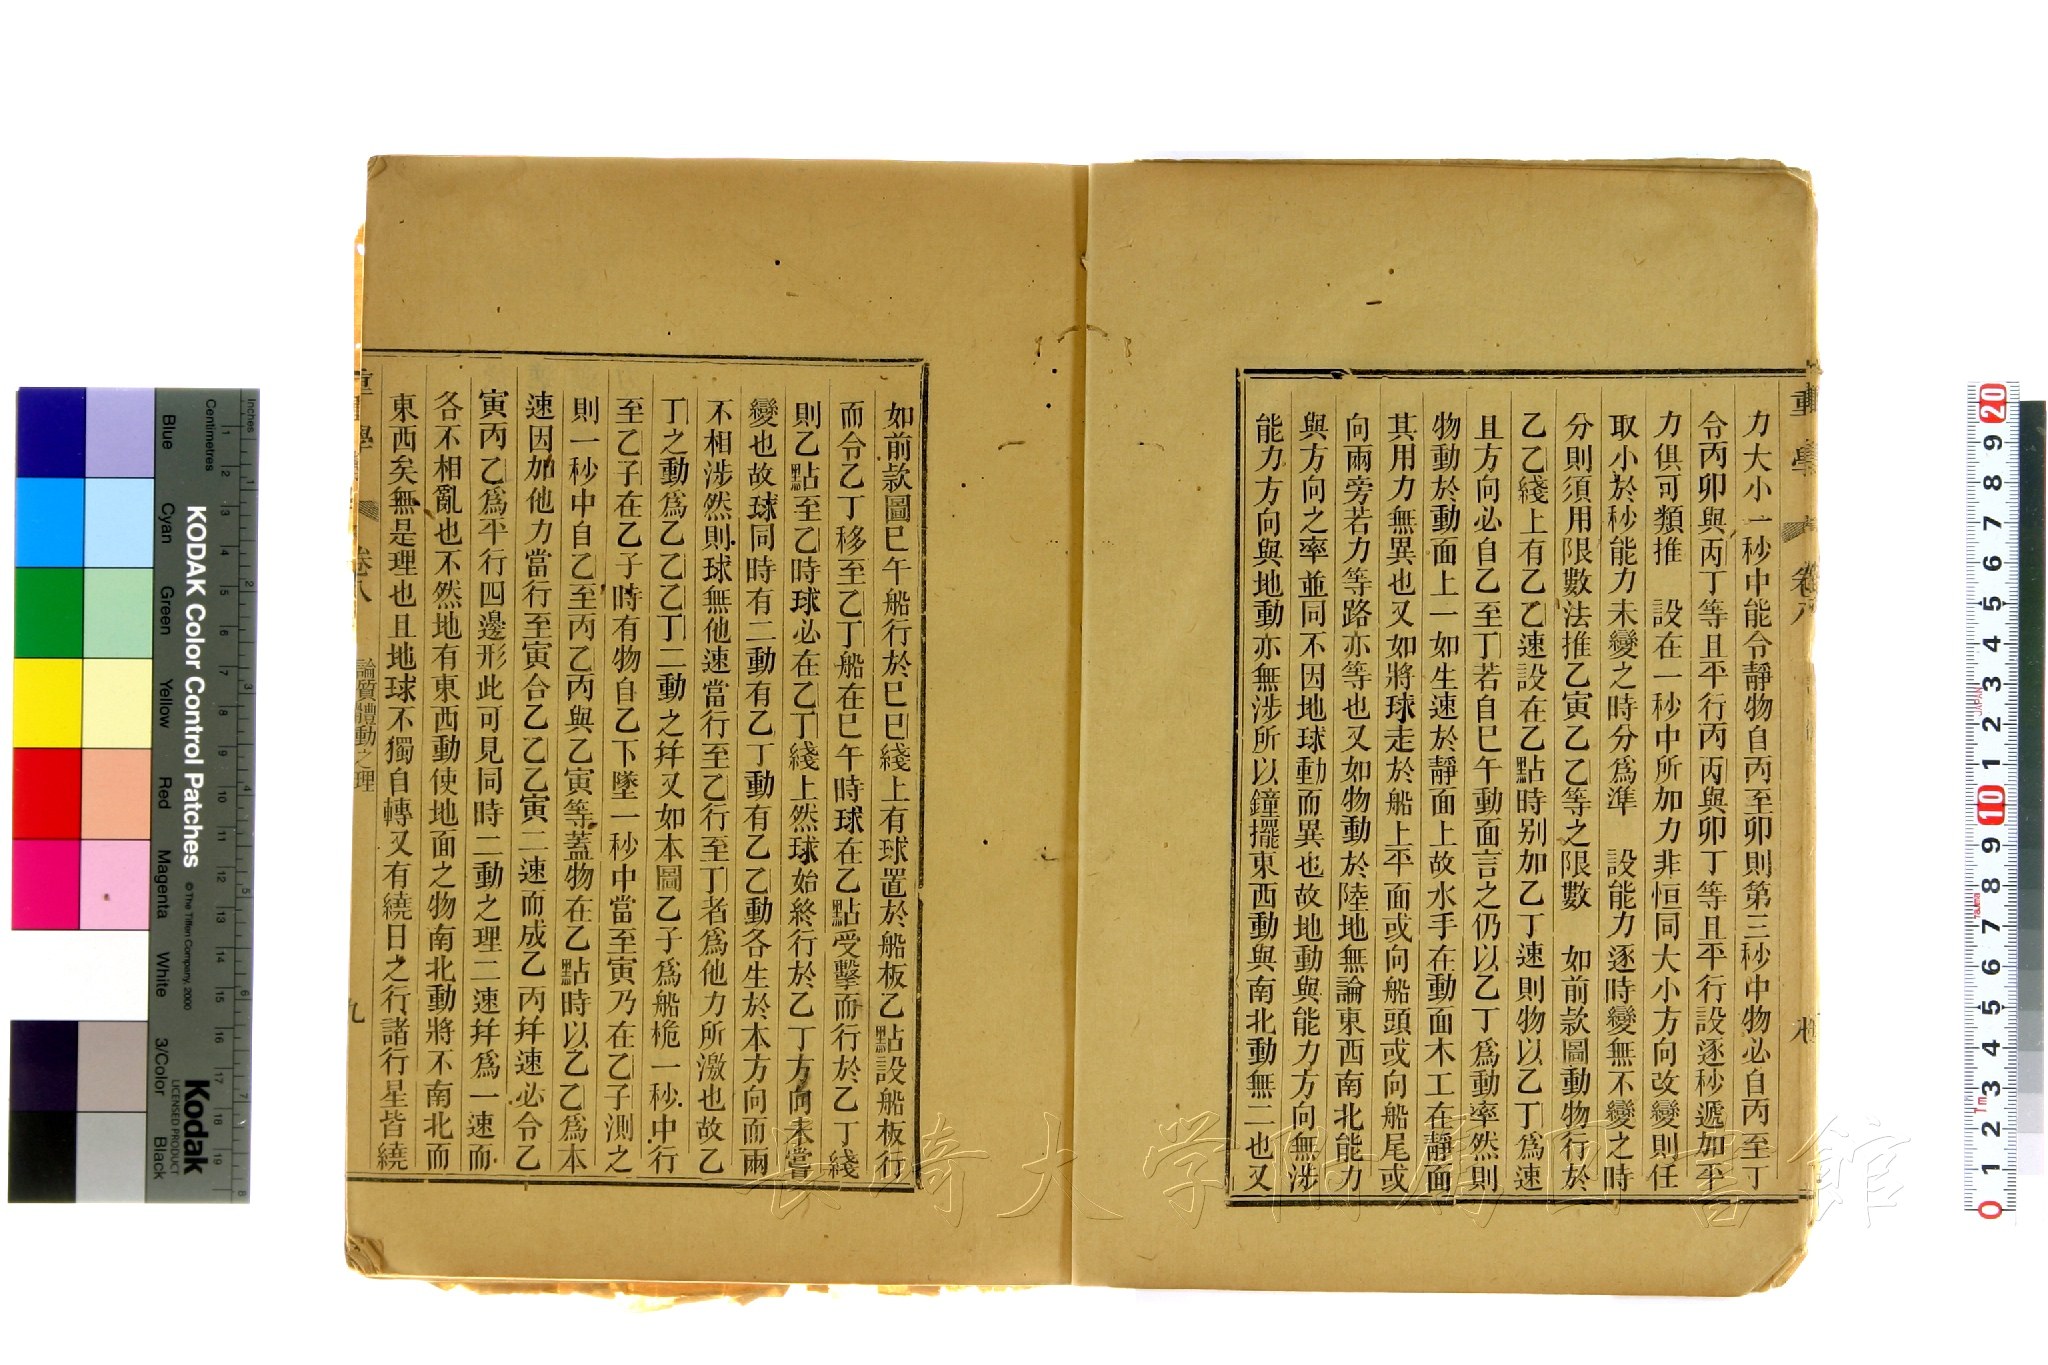 力大小一秒中能令靜物自丙至卯則第三秒中物必自丙至丁
令丙卯與丙丁等且平行丙丙與卯丁等且平行設逐秒遞加平
力俱可類推　設在一秒中所加力非恒同大小方向改變則任
取小於秒能力未變之時分為準　設能力逐時變無不變之時
分則須用限數法推乙寅乙乙等之限數　如前款圖動物行於
乙乙綫上有乙乙速設在乙點時別加乙丁速則物以乙丁爲速
且方向必自乙至丁若自巳午動面言之仍以乙丁爲動率然則
物動於動面上一如生速於靜面上故水手在動面木工在靜面
其用力無異也又如將球走於船上平面或向船頭或向船尾或
向兩旁若力等路亦等也又如物動於陸地無論東西南北能力
與方向之率並同不因地球動而異也故地動與能力方向無涉
能力方向與地動亦無涉所以鐘擺東西動與南北動無二也又
如前款圖巳午船行於巳巳綫上有球置於船板乙點設船板行
而令乙丁移至乙丁船在巳午時球在乙點受擊而行於乙丁綫
則乙點至乙時球必在乙丁綫上然球始終行於乙丁方向未嘗
變也故球同時有二動有乙丁動有乙乙動各生於本方向而兩
不相涉然則球無他速當行至乙行至丁者爲他力所激也故乙
丁之動爲乙乙乙丁二動之幷又如本圖乙子爲船桅一秒中行
至乙子在乙子時有物自乙下墜一秒中當至寅乃在乙子測之
則一秒中自乙至丙乙丙與乙寅等蓋物在乙點時以乙乙爲本
速因加他力當行至寅合乙乙乙寅二速而成乙丙幷速必令乙
寅丙乙爲平行四邊形此可見同時二動之理二速幷爲一速而
各不相亂也不然地有東西動使地面之物南北動將不南北而
東西矣無是理也且地球不獨自轉又有繞日之行諸行星皆繞
重學
卷八
論質體動之理
九
KODAK Color Control Patches
© The Tiffen Company, 2000
Kodak
LICENSED PRODUCT
Inches
Centimetres
Blue
Cyan
Green
Yellow
Red
Magenta
White
3/Color
Black
長崎大学附属図書館
JAPAN